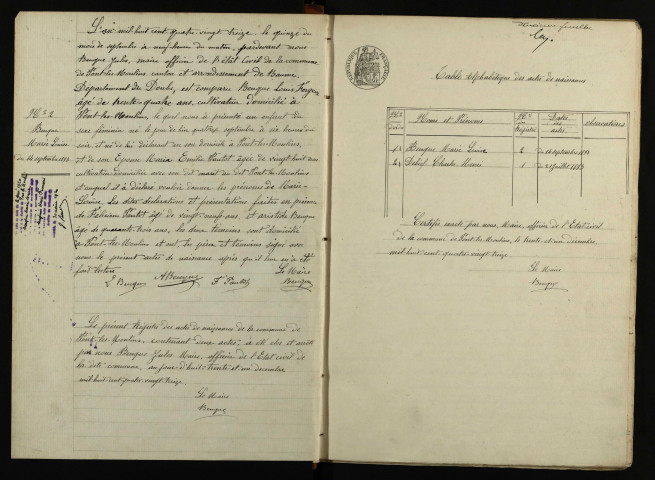 L'an mil huit cent quatre vingt treize, le quinze du
mois de septembre à neuf heures du matin, pardevant nous
Beugne Jules, maire officier de l'état Civil de la commune
de Pont-les-Moulins canton et arrondissement de Baume,
Département du Doubs, est comparu Beugne Louis
âgé de trente-quatre ans, cultivateur domicilié à
Pont-les-Moulins, lequel nous a présenté un enfant du
sexe féminin né le jour de hier quatorze septembre à six heures du
soir, et né de lui déclarant en son domicile à Pont-les-Moulins,
et de son Epouse Maria Emilie Pautet âgée de vingt huit ans
cultivatrice domiciliée avec son dit mari au dit Pont-les-Moulins
et auquel il a déclaré vouloir donner les prénoms de Marie-
Louise, les dites déclarations et présentations faites en présence
de Pautet âgé de vingt-neuf ans, et Aristide Beugne
âgé de quarante trois ans, les deux témoins sont domiciliés
à Pont-les-Moulins et ont, les père et témoins signé avec
nous le présent acte de naissance après qu'il leur en a été
fait lecture
L Beugne A Beugne F Pautet Le Maire
Beugne
N° 2
Beugne
Marie Louise
du 14 septembre 1893
Le présent Registre des actes de naissances de la commune de
Pont-les-Moulins, contenant deux actes, a été clos et arrêté
par nous Beugne Jules Maire, officier de l'Etat civil de
la dite commune, au jour d'hui trente et un décembre
mil huit cent quatre vingt treize.
Le Maire
Beugne
Table Alphabétique des actes de naissance
Noms et Prénoms
Registre
Dates
des
actes
Observations
Beugne Marie Louise 2 du 14 septembre 1893
Charles Henri 1 du 2 Juillet 1893
Certifié exacte par nous, Maire, officier de l'Etat civil
de la commune de Pont-les-Moulins, le trente et un décembre
mil huit cent quatre vingt treize.
Le Maire
Beugne